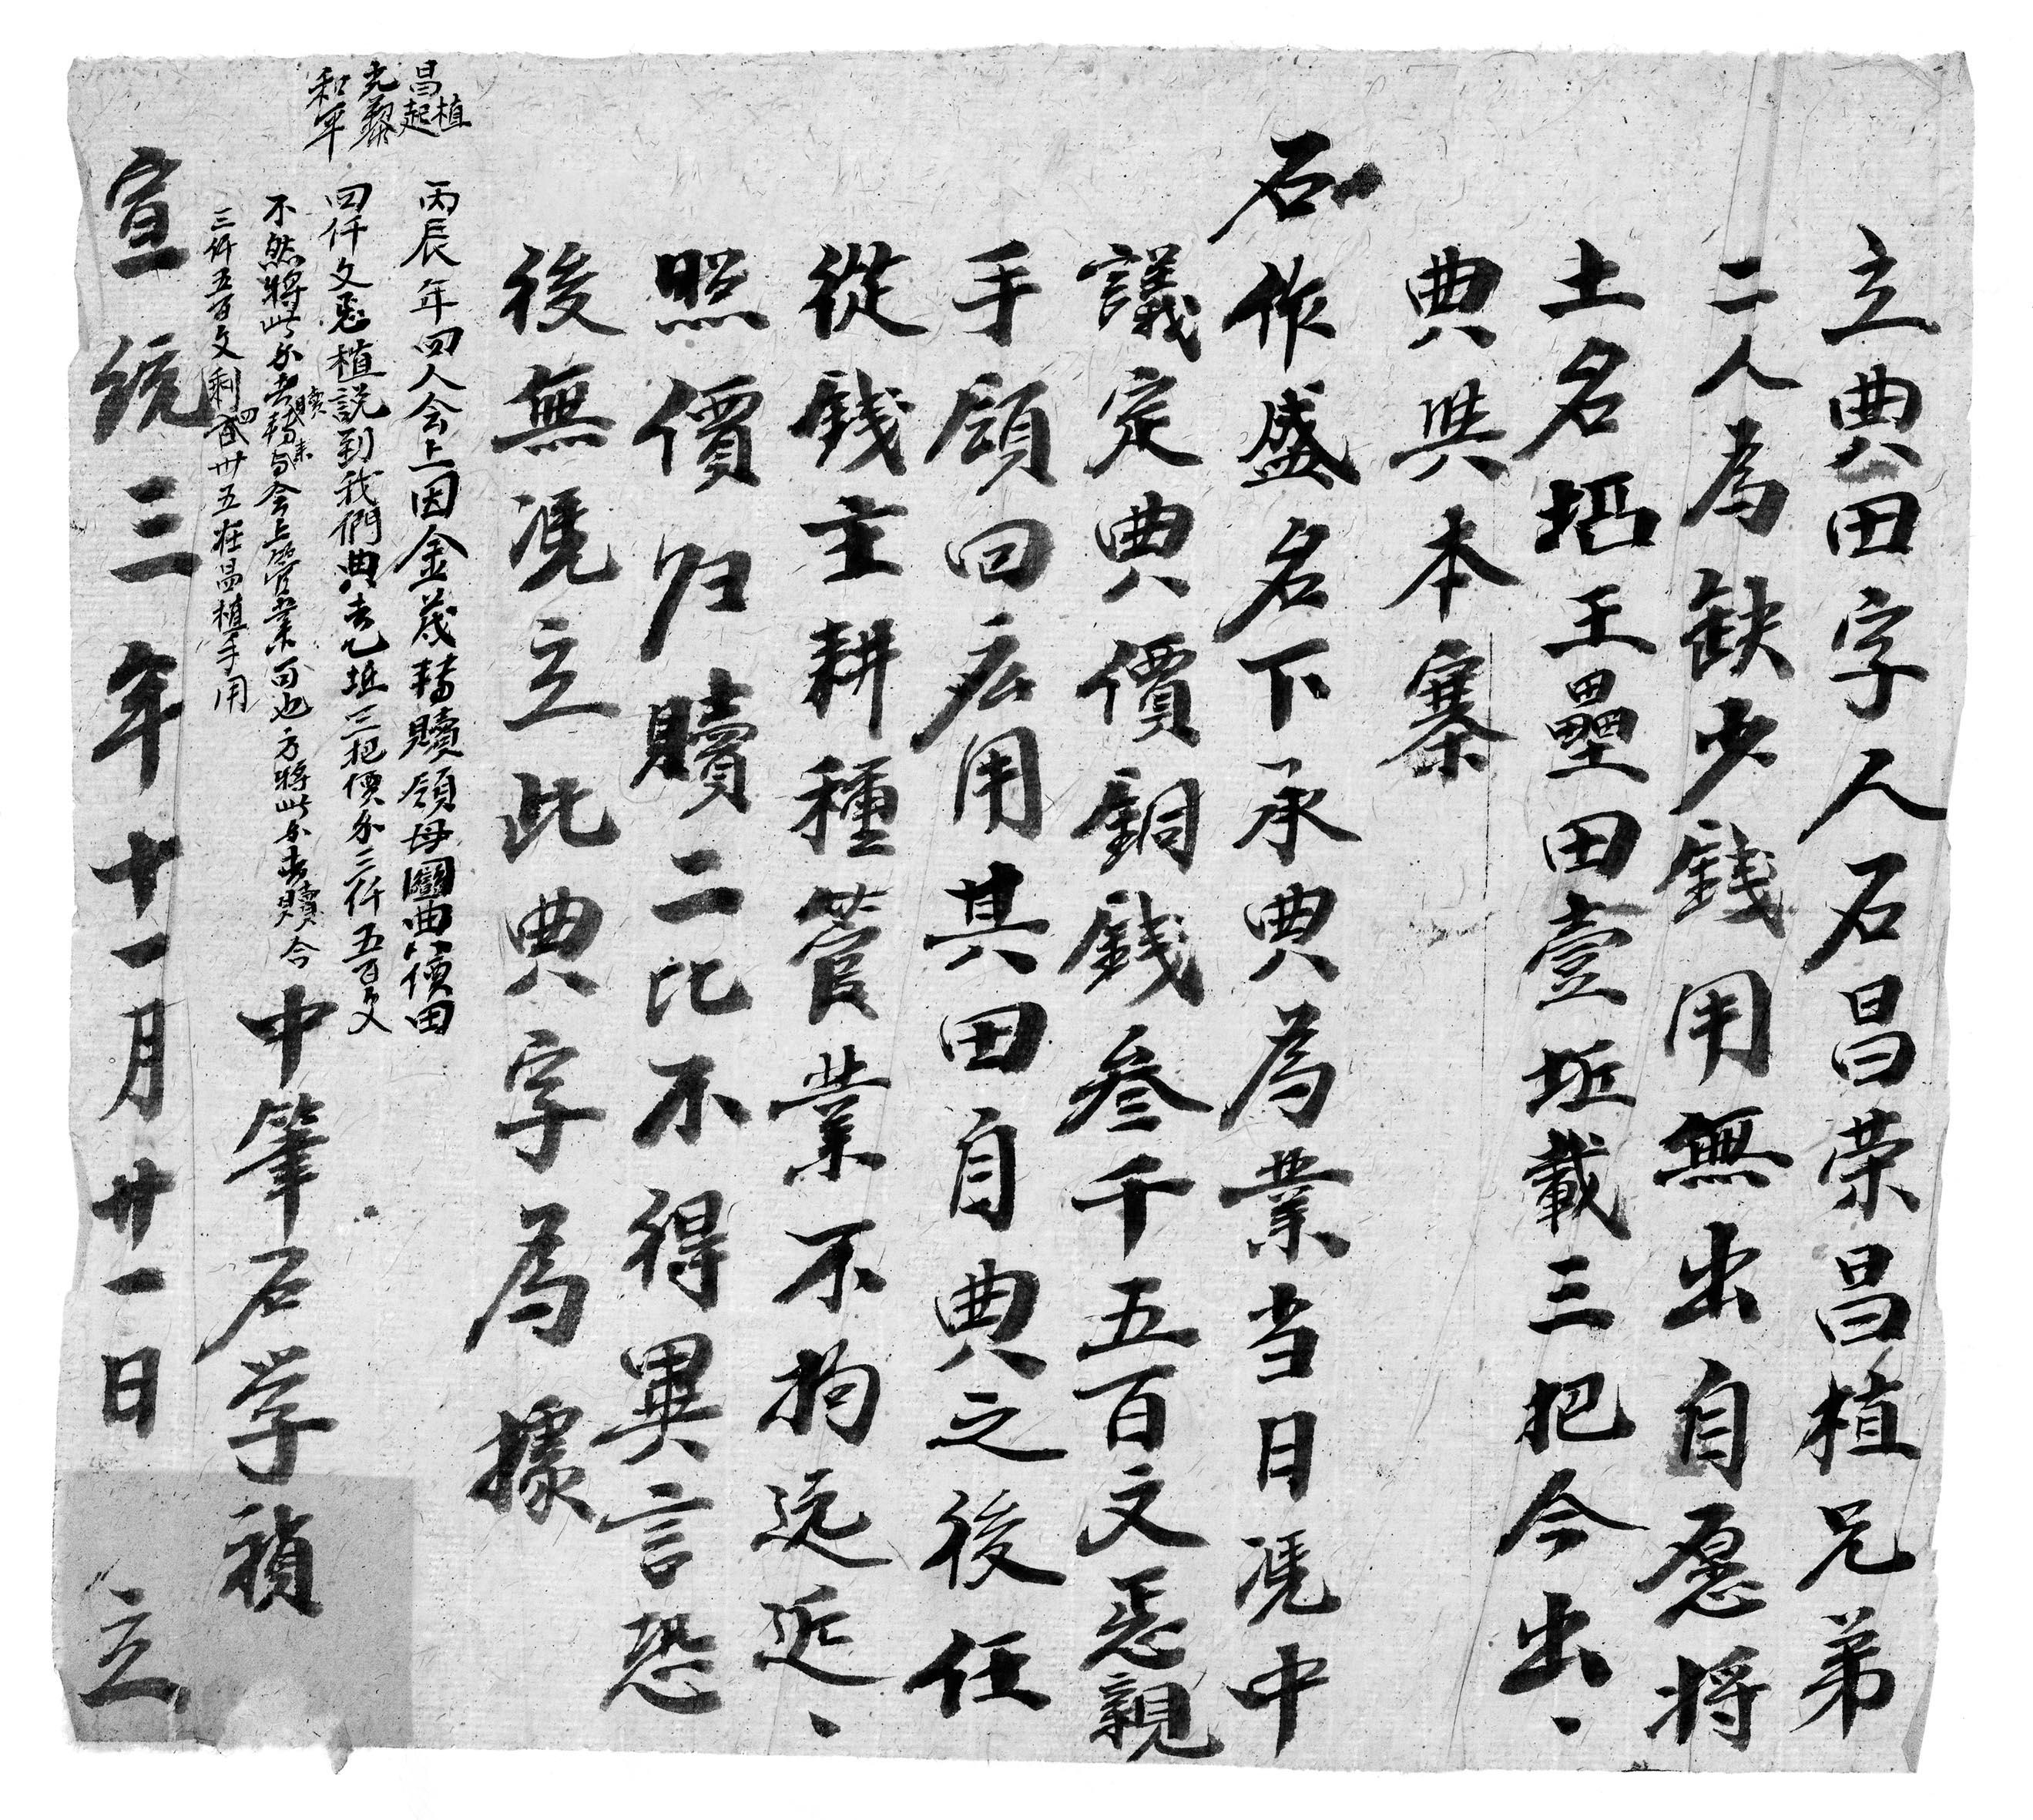 立典田字人石昌荣昌植兄弟
二人為缺少錢用無出自愿将
土名王壘田壹坵載三把今出、
典與本寨
石作盛名下承典為業当日凴中
議定典價銅錢叁千五百文悉親
手領回应用其田自典之後任
從錢主耕種管業不拘远近、
照價归贖二比不得異言恐
後無凴立此典字為據
昌植
起
光黎
和平
丙辰年四人会上因金茂轉贖領母典價田
四仟文悉植説到我們典去乙坵三把價分三仟五百文
不然將此分去贖來轉与会上管業可也方將此分去贖今
三仟五百文剩四百卅五在昌植手用
中筆石学禎
宣統三年十一月廿一日立